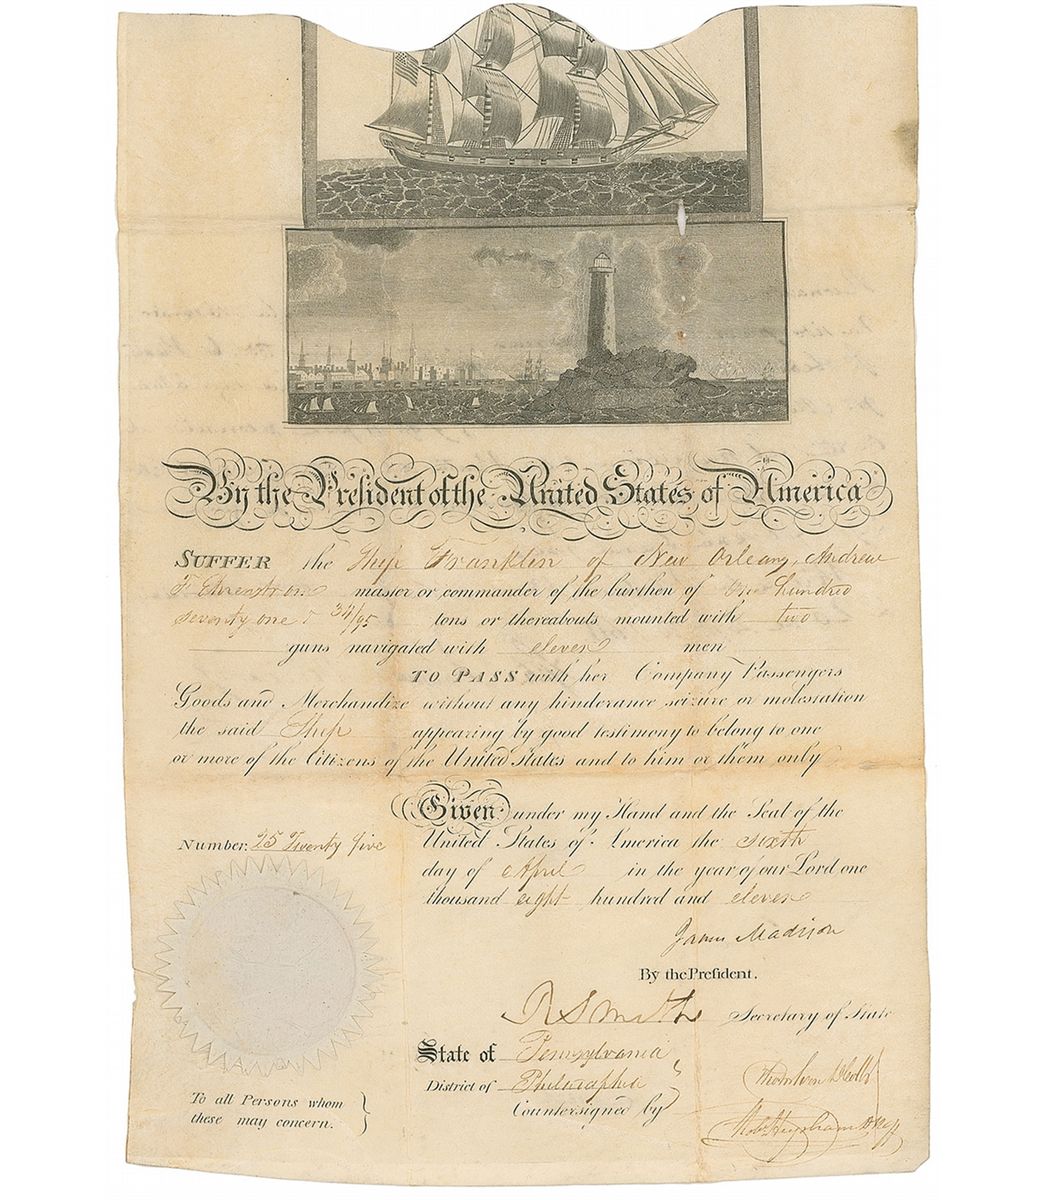 By the President of the United States of America
SUFFER the Ship Franklin of New Orleans, Andrew
F Ehrenstrom master or commander of the burthen of One hundred
seventy one & 34/95 tons or thereabouts mounted with two
guns navigated with eleven men
TO PASS with her Company Passengers
Goods and Merchandize without any hinderance seizure or molestation
the said Ship appearing by good testimony to belong to one
or more of the Citizens of the United States and to him or them only
Given under my Hand and the Seal of the
United States of America the sixth
day of April in the year of our Lord one
thousand eight hundred and eleven
Number. 25 Twenty five
James Madison
By the Preſident.
R Smith Secretary of State
State of Pennsylvania
District of Philadelphia
Countersigned by
To all Persons whom
these may concern.